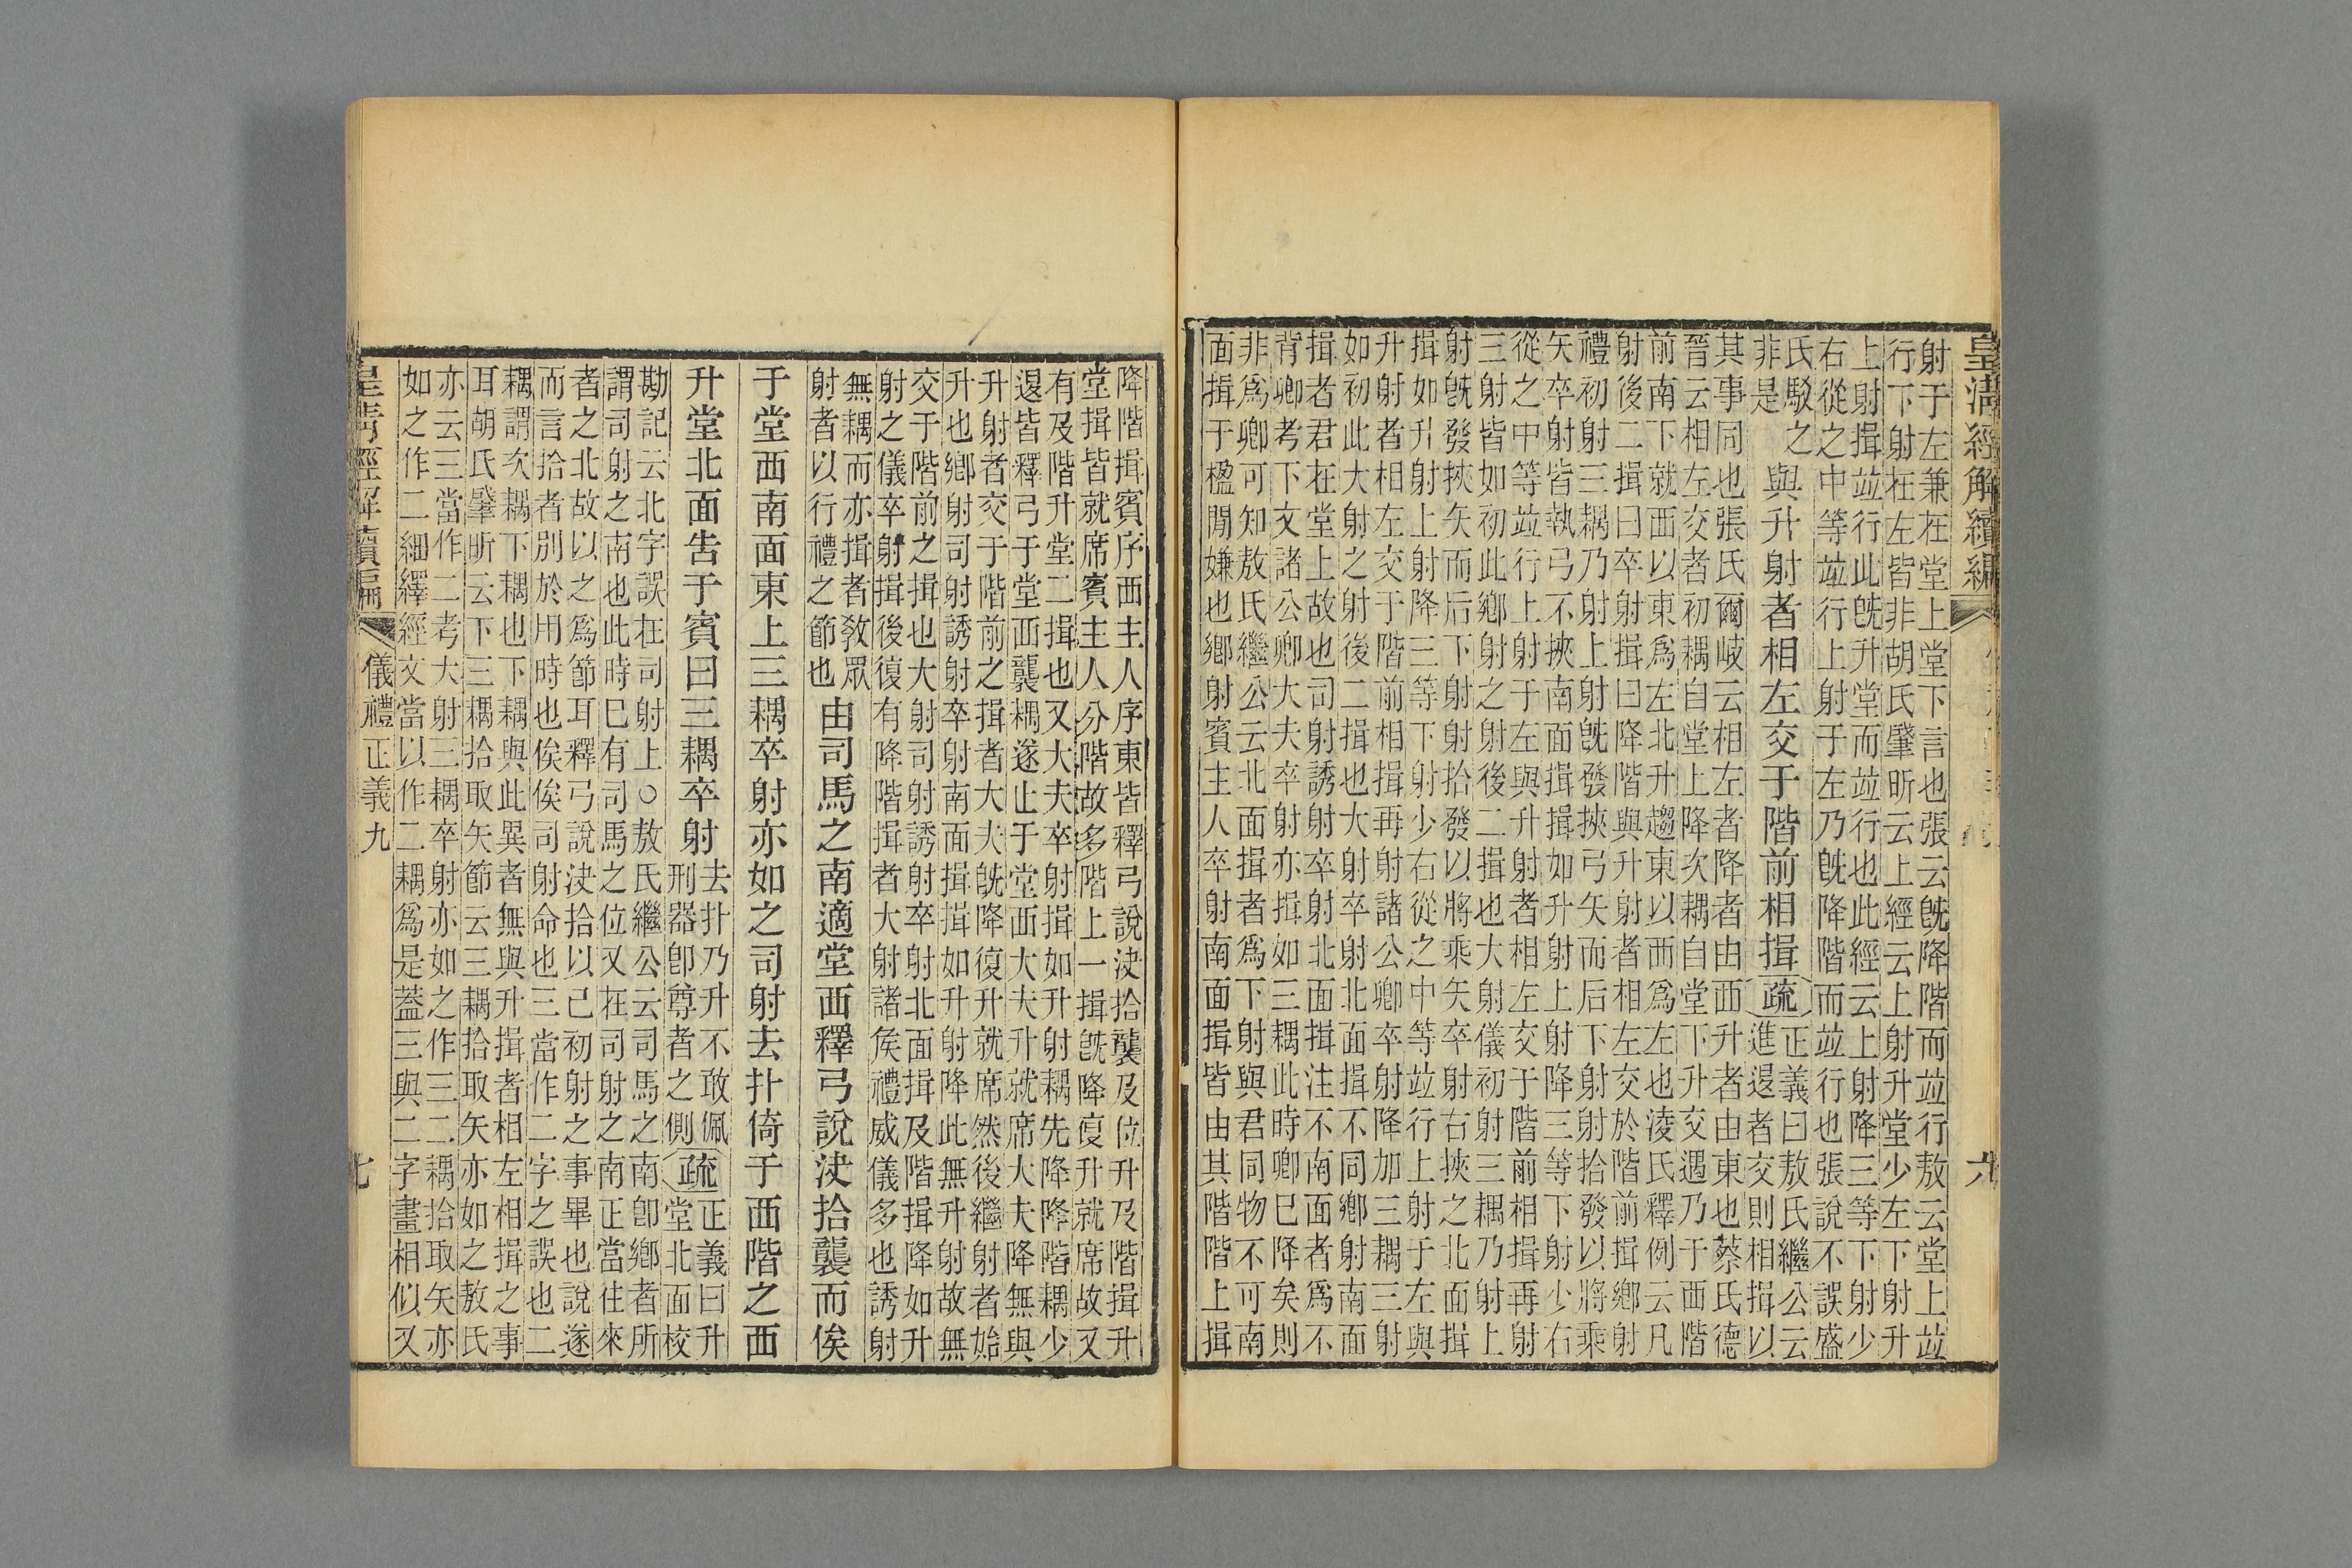 皇淸經解續編 六
射于左兼在堂上堂下言也張云旣降階而竝行敖云堂上竝
行下射在左皆非胡氏肇昕云上經云上射升堂少左下射升
上射揖竝行此旣升堂而竝行也此經云上射降三等下射少
右從之中等竝行上射于左乃旣降階而竝行也張說不誤盛
氏駁之
非是
與升射者相左交于階前相揖
疏
正義曰敖氏繼公云
進退者交則相揖以
其事同也張氏爾岐云相左者降者由西升者由東也蔡氏德
晉云相左交者初耦自堂上降次耦自堂下升交遇乃于西階
前南下就西以東爲左北升趨東以西爲左也淩氏釋例云凡
射後二揖曰卒射揖曰降階與升射者相左交於階前揖鄉射
禮初射三耦乃射上射旣發挾弓矢而后下射拾發以將乘
矢卒射皆執弓不挾南面揖揖如升射上射降三等下射少右
從之中等竝行上射于左與升射者相左交于階前相揖再射
三射皆如初此鄉射之射後二揖也大射儀初射三耦乃射上
射旣發挾矢而后下射射拾發以將乘矢卒射右挾之北面揖
揖如升射上射降三等下射少右從之中等竝行上射于左與
升射者相左交于階前相揖再射諸公卿卒射降加三耦三射
如初此大射之射後二揖也大射卒射北面揖不同鄉射南面
揖者君在堂上故也司射誘射卒射北面揖注不南面者爲不
背卿考下文諸公卿大夫卒射亦揖如三耦此時卿巳降矣則
非爲卿可知敖氏繼公云北面揖者爲下射與君同物不可南
面揖于楹閒嫌也鄉射賓主人卒射南面揖皆由其階階上揖
降階揖賓序西主人序東皆釋弓說決拾襲及位升及階揖升
堂揖皆就席賓主人分階故多階上一揖旣降復升就席故又
有及階升堂二揖也又大夫卒射揖如升射耦先降降階耦少
退皆釋弓于堂西襲耦遂止于堂西大夫升就席大夫降無與
升射者交于階前之揖者大夫旣降復升就席然後繼射者始
升也鄉射司射誘射卒射南面揖揖如升射降此無升射故無
交于階前之揖也大射司射誘射卒射北面揖及階揖降如升
射之儀卒射揖後復有降階揖者大射諸侯禮威儀多也誘射
無耦而亦揖者敎眾
射者以行禮之節也
由司馬之南適堂西釋弓說決拾襲而俟
于堂西南面東上三耦卒射亦如之司射去扑倚于西階之西
升堂北面告于賓曰三耦卒射
去扑乃升不敢佩
刑器卽尊者之側
疏
正義曰升
堂北面校
勘記云北字誤在司射上○敖氏繼公云司馬之南卽鄉者所
謂司射之南也此時巳有司馬之位又在司射之南正當往來
者之北故以之爲節耳釋弓說決拾以己初射之事畢也說遂
而言拾者別於用時也俟俟司射命也三當作二字之誤也二
耦謂次耦下耦也下耦與此異者無與升揖者相左相揖之事
耳胡氏肇昕云下三耦拾取矢節云三耦拾取矢亦如之敖氏
亦云三當作二考大射三耦卒射亦如之作三二耦拾取矢亦
如之作二細繹經文當以作二耦爲是蓋三與二字畫相似又
皇淸經解續編 儀禮正義九 七